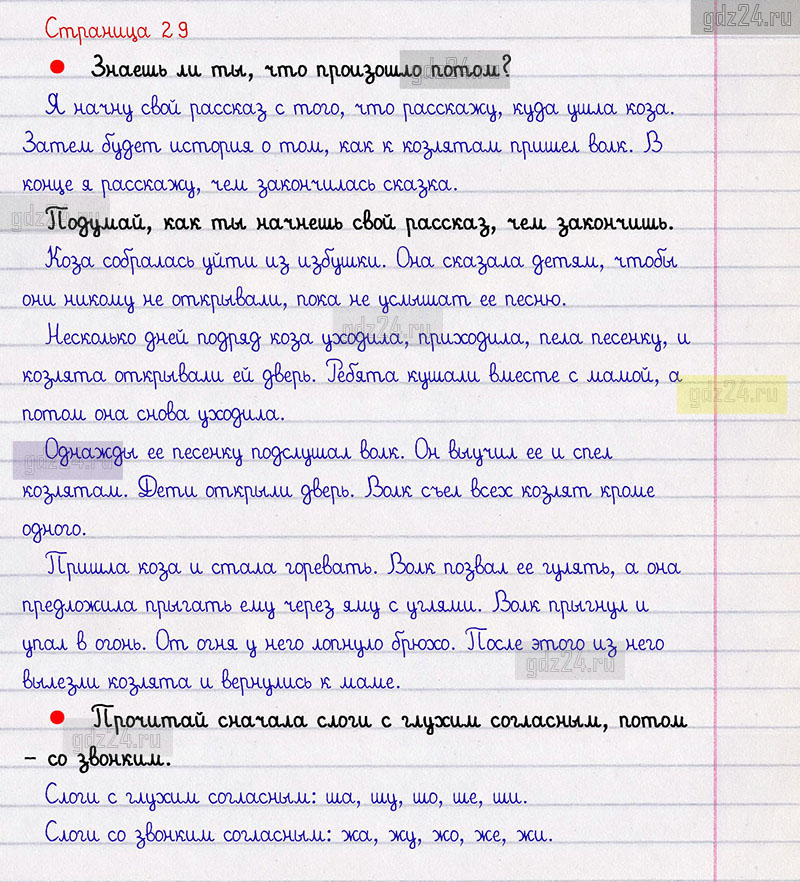 gdz24.ru
Страница 29
Знаешь ли ты, что произошло потом?
gdz24.ru
Я начну свой рассказ с того, что расскажу, куда ушла коза.
Затем будет история о том, как к козлятам пришел волк. В
конце я расскажу, чем закончилась сказка.
gdz24.ru
Подумай, как ты начнешь свой рассказ, чем закончишь.
Коза собралась уйти из избушки. Она сказала детям, чтобы
они никому не открывали, пока не услышат ее песню.
gdz24.ru
Несколько дней подряд коза уходила, приходила, пела песенку, и
козлята открывали ей дверь. Ребята кушали вместе с мамой, а
gdz24.ru
потом она снова уходила.
Однажды ее песенку подслушал волк. Он выучил ее и спел
gdz24.ru
козлятам. Дети открыли дверь. Волк съел всех козлят кроме
одного.
Пришла коза и стала горевать. Волк позвал ее гулять, а она
предложила прыгать ему через яму с углями. Волк прыгнул и
упал в огонь. От огня у него лопнуло брюхо. После этого из него
gdz24.ru
вылезли козлята и вернулись к маме.
Прочитай сначала слоги с глухим согласным, потом
gdz24.ru
– со звонким.
Слоги с глухим согласным: ша, шу, шо, ше, ши.
Слоги со звонким согласным: жа, жу, жо, же, жи.